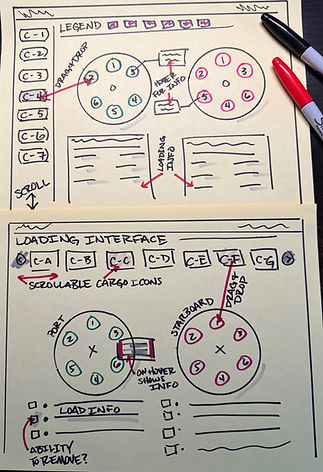 LEGEND
C-1
C-2
C-3
C-4
C-5
C-6
C-7
SCROLL
DRAG & DROP
1
2
3
4
5
6
HOVER
FOR INFO
1
2
3
4
5
6
LOADING
INFO
LOADING INTERFACE
C-A
C-B
C-C
C-D
C-E
C-F
C-G
SCROLLABLE CARGO ICONS
DRAG &
DROP
PORT
1
2
3
4
5
6
STARBOARD
1
2
3
4
5
6
ON HOVER
SHOWS
INFO
LOAD INFO
ABILITY
TO REMOVE?